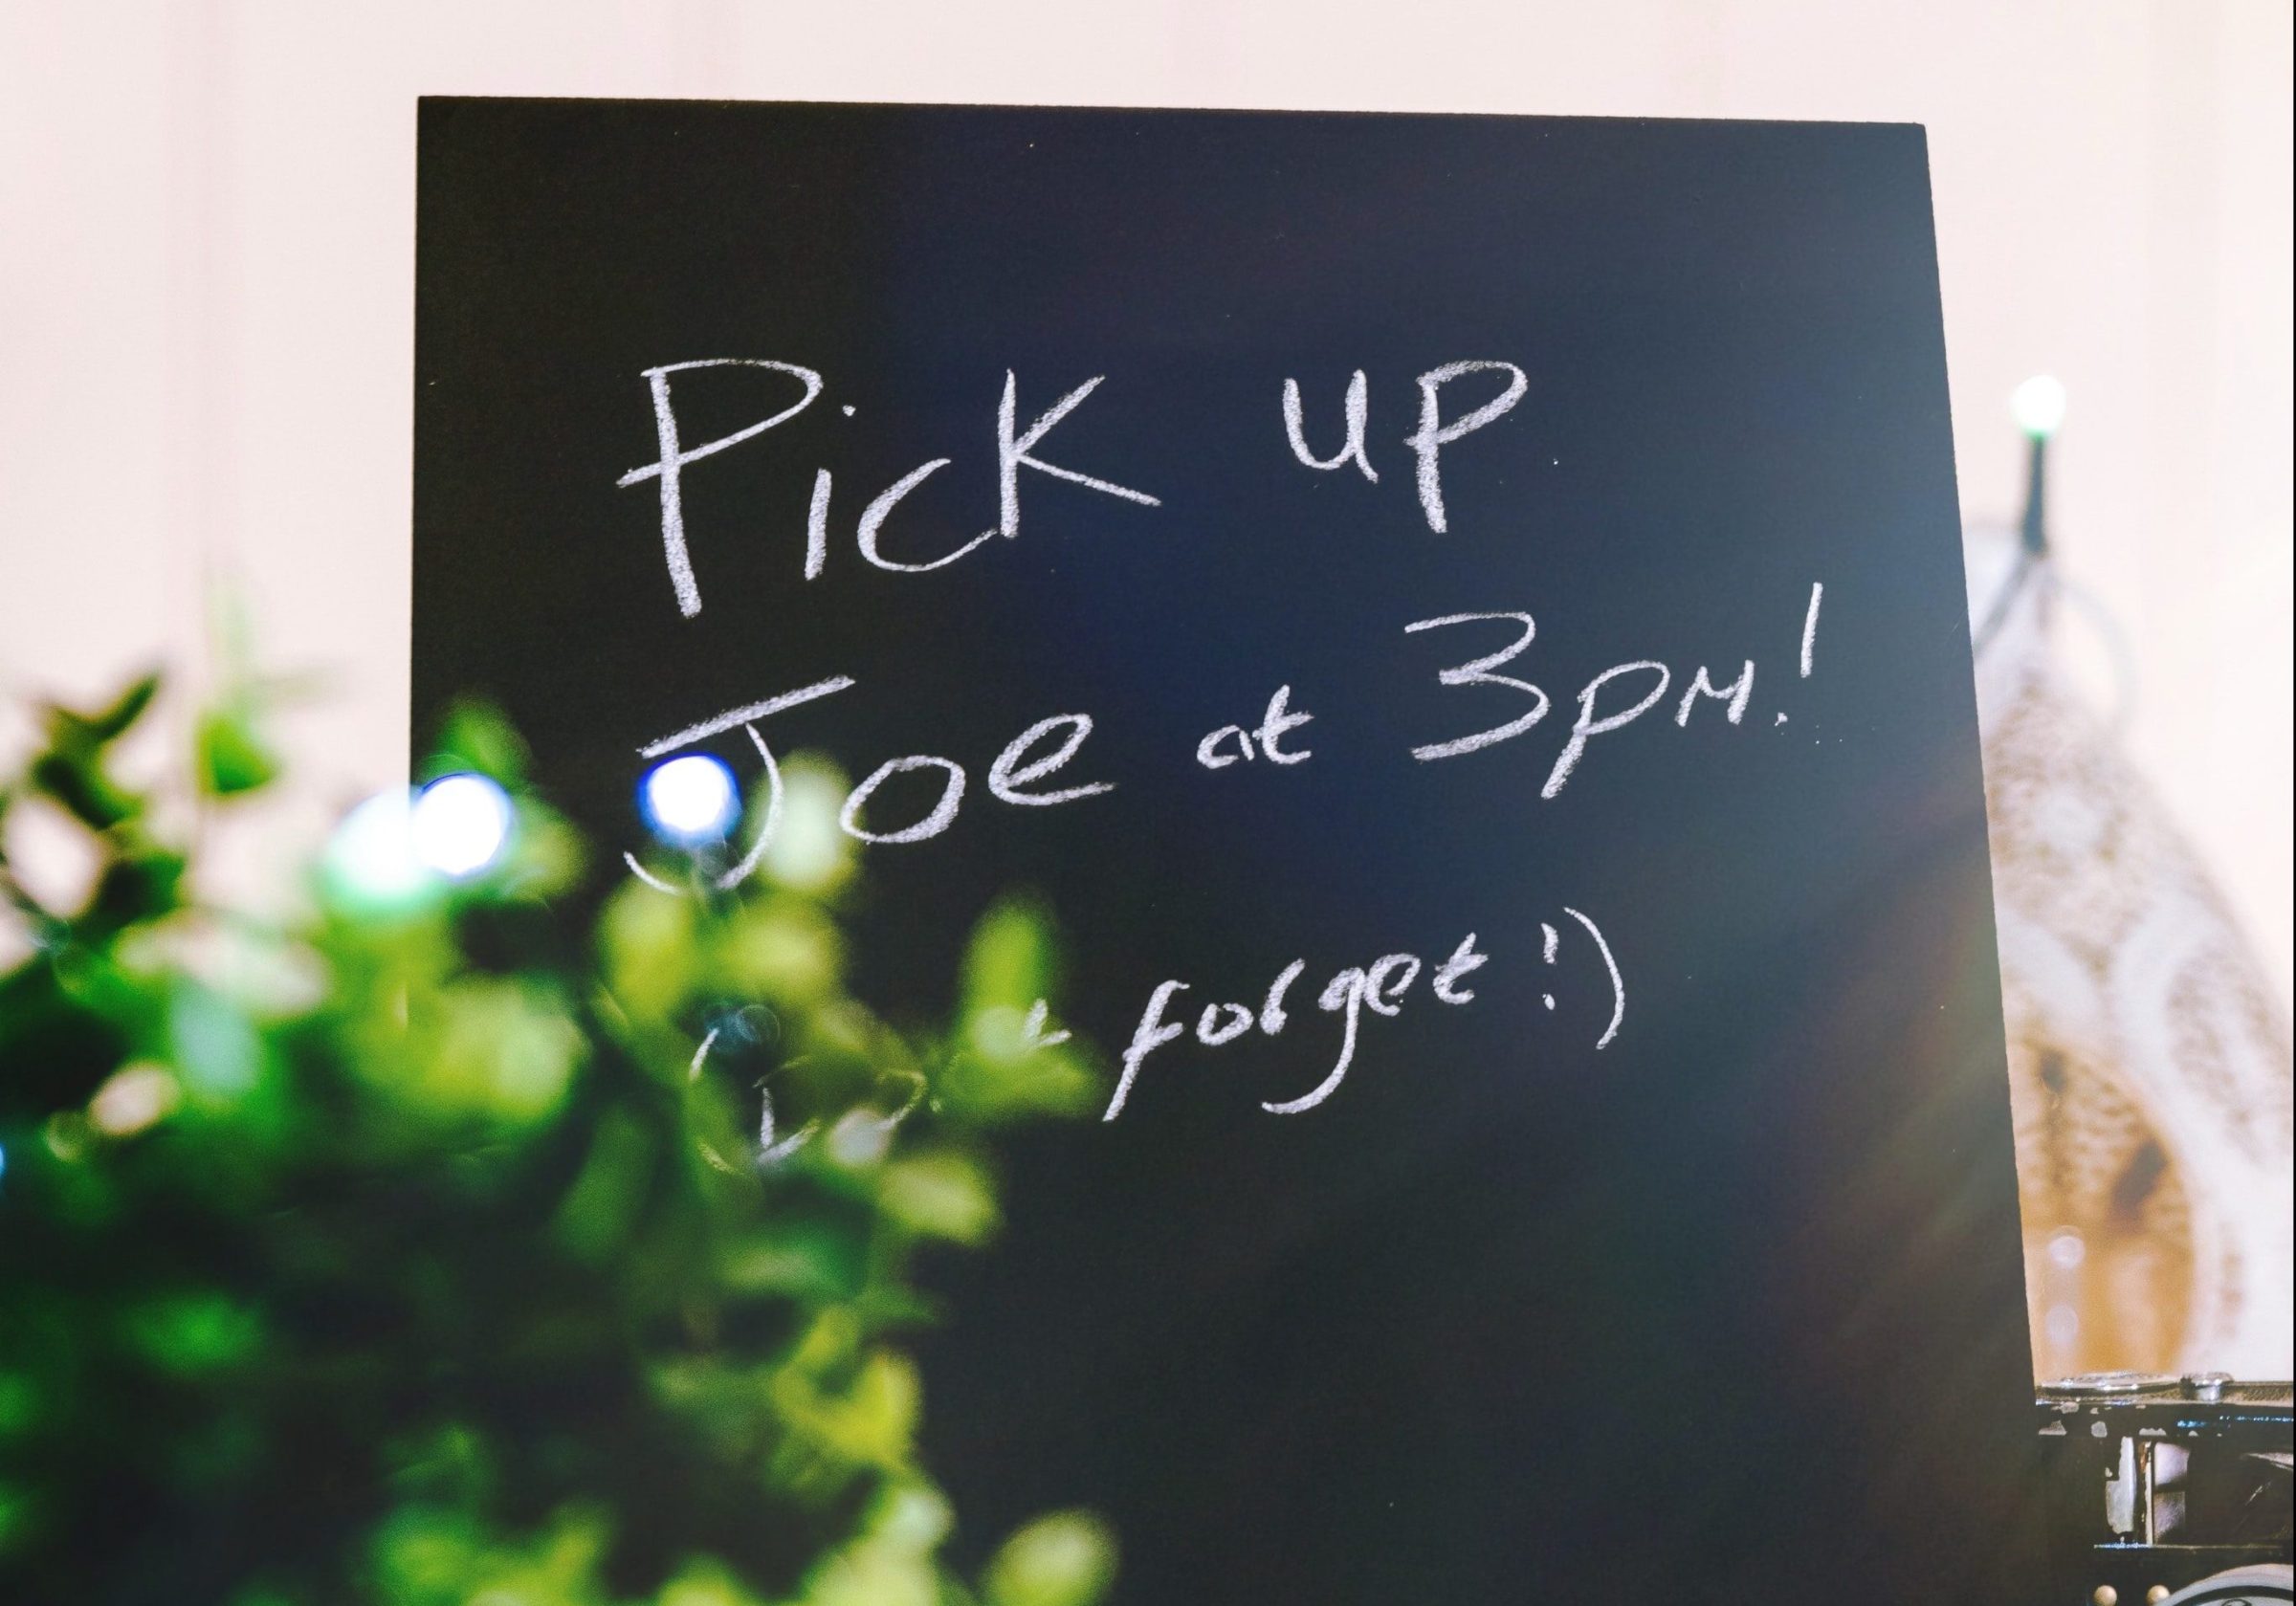 Pick up
Joe at 3pm!
forget!)